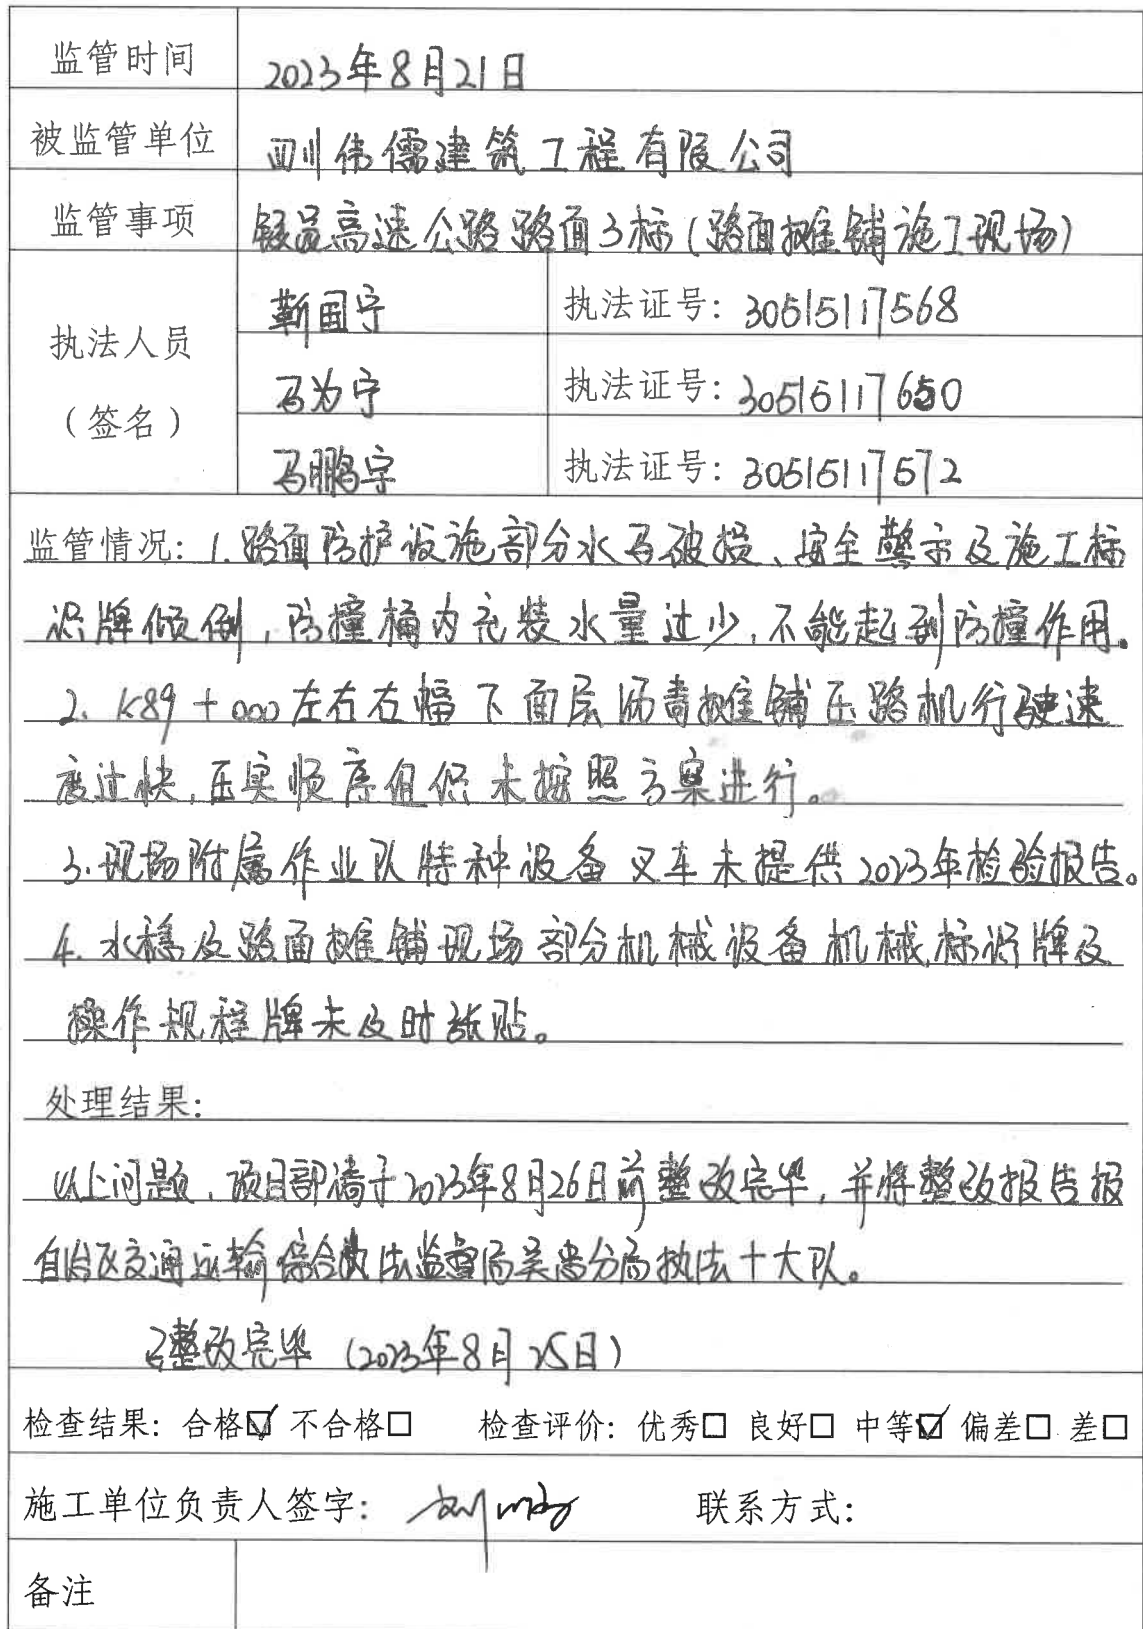 监管时间 2023年8月21日
被监管单位 四川伟儒建筑工程有限公司
监管事项 银昆高速公路路面3标(路面摊铺施工现场)
执法人员
(签名)
靳国宁 执法证号: 30515117568
马为宁 执法证号: 30515117650
马鹏宇 执法证号: 30515117572
监管情况: 1.路面防护设施部分水马破损、安全警示及施工标
识牌倾倒,防撞桶内充装水量过少,不能起到防撞作用。
2. K89+000左右右幅下面层沥青摊铺压路机行驶速
度过快,压实顺序组织未按照方案进行。
3.现场附属作业队特种设备叉车未提供2023年检验报告。
4.水稳及路面摊铺现场部分机械设备机械标识牌及
操作规程牌未及时张贴。
处理结果:
以上问题,项目部请于2023年8月26日前整改完毕,并将整改报告报
自治区交通运输综合执法监督局吴忠分局执法十大队。
已整改完毕 (2023年8月25日)
检查结果: 合格☑ 不合格□ 检查评价: 优秀□ 良好□ 中等☑ 偏差□ 差□
施工单位负责人签字: 联系方式:
备注